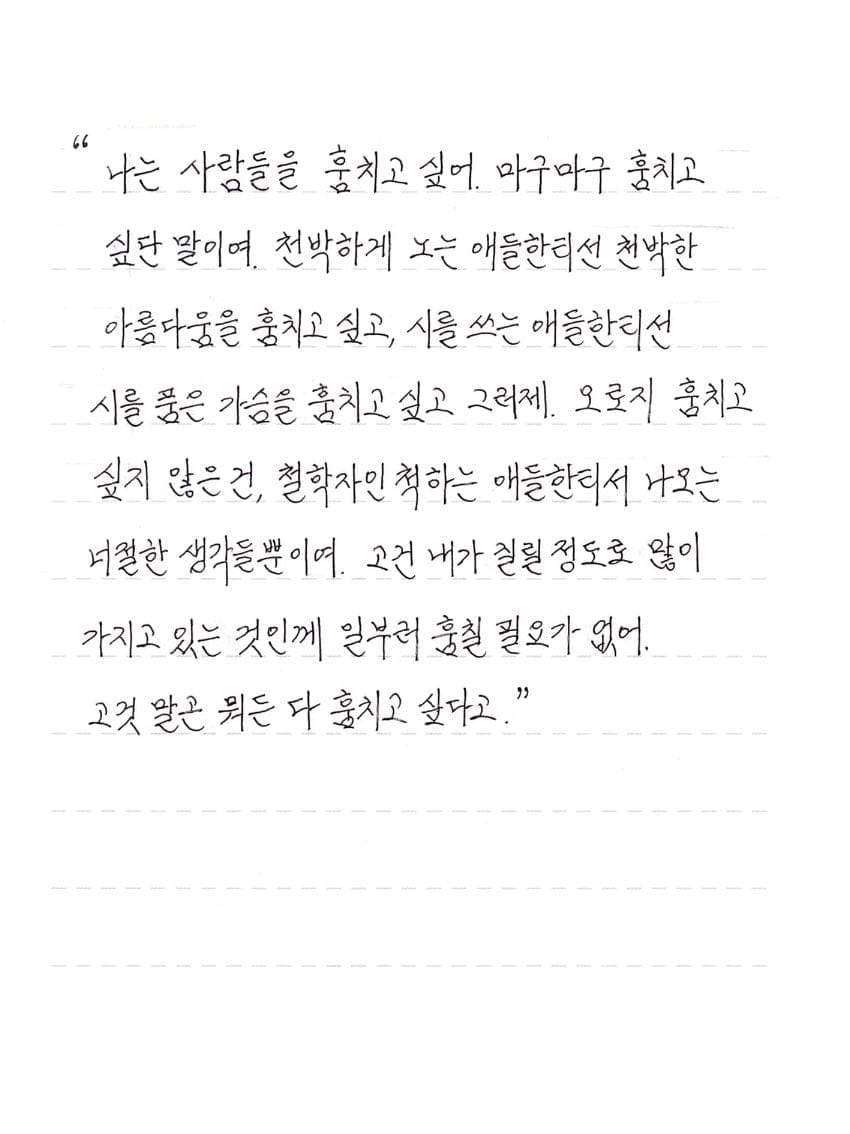 “나는 사람들을 훔치고 싶어. 마구마구 훔치고
싶단 말이여. 천박하게 노는 애들한티선 천박한
아름다움을 훔치고 싶고, 시를 쓰는 애들한티선
시를 품은 가슴을 훔치고 싶고 그러제. 오로지 훔치고
싶지 않은 건, 철학자인 척하는 애들한티서 나오는
너절한 생각들뿐이여. 고건 내가 질릴 정도로 많이
가지고 있는 것인께 일부러 훔칠 필요가 없어.
고것 말곤 뭐든 다 훔치고 싶다고.”